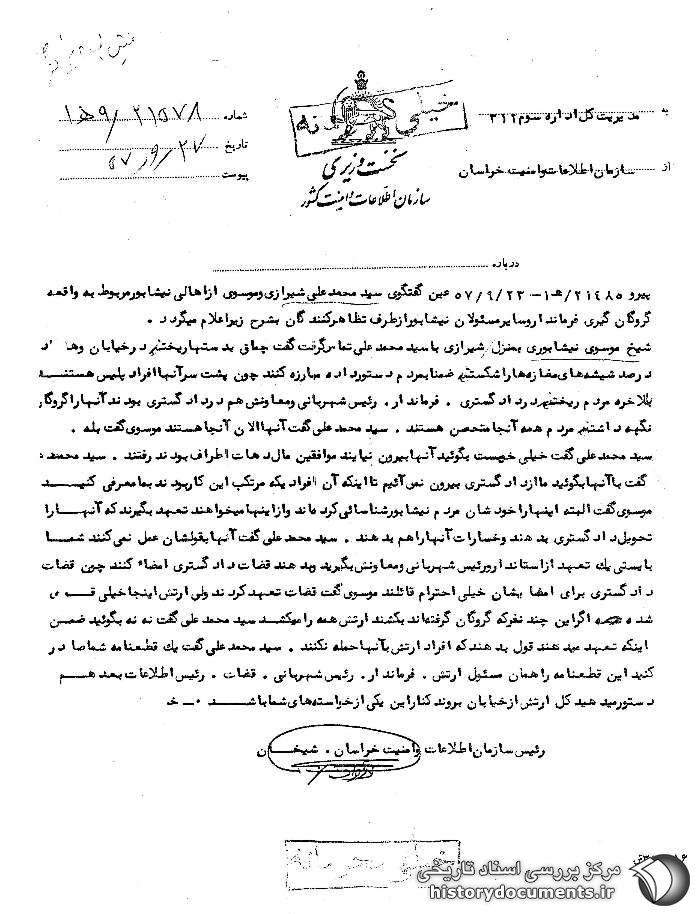 خیلی محرمانه
به مدیریت کل اداره سوم ۳۱۲
از سازمان اطلاعات وامنیت خراسان
نخست وزیری
سازمان اطلاعات و امنیت کشور
شماره ۲۱۵۷۸/۹ه۱
تاریخ ۵۷/۹/۲۷
پیوست
درباره
پیرو ۲۱۴۸۵/ه۱ـ ۵۷/۹/۲۳ عین گفتگوی سید محمدعلی شیرازی وموسوی ازاهالی نیشابور مربوط به واقعه
گروگان گیری فرماندار وسایر مسئولان نیشابور ازطرف تظاهرکنند گان بشرح زیراعلام میگرد د .
شیخ موسوی نیشابوری بمنزل شیرازی با سید محمدعلی تماس گرفت گفت چماق بد ستها ریختند درخیابان وها د
د رصد شیشه های مغازه ها را شکستند ضمنا بمرد م د ستورد اد ه مبارزه کنند چون پشت سر آنها افراد پلیس هستند
بالاخره مرد م ریختند د رد اد گستری . فرماند ار . رئیس شهربانی ومعاونش هم د رد اد گستری بود ند آنها را گروگان
نگهد اشتند مرد م همه آنجا متحصن هستند . سید محمد علی گفت آنها الان آنجا هستند موسوی گفت بله .
سید محمد علی گفت خیلی خوبست بگوئید آنها بیرون نیایند موافقین مال د هات اطراف بود ند رفتند . سید محمد
گفت با آنها بگوئید ما ازد اد گستری بیرون نمی آئیم تا اینکه آن افراد یکه مرتکب این کاربود ند بما معرفی کنید
موسوی گفت البته اینها را خود شان مرد م نیشابور شناسائی کرد ه اند وازاینها میخواهند تعهد بگیرند که آنها را
تحویل د اد گستری بد هند وخسارات آنها را هم بد هند . سید محمد علی گفت آنها بقولشان عمل نمی کنند شما
بایستی یك تعهد ازاستاند ار ورئیس شهربانی ومعاونش بگیرید وبد هند قضات د اد گستری امضاء کنند چون قضات
د اد گستری برای امضا یشان خیلی احترام قائلند موسوی گفت قضات تعهد کرد ند ولی ارتش اینجا خیلی قوی
شد ه اگراین چند نفر که گروگان گرفته اند بکشند ارتش همه را میکشد سید محمد علی گفت نه نه بگوئید ضمن
اینکه تعهد مید هند قول بد هند که افراد ارتش بآنها حمله نکنند . سید محمد علی گفت یك قطعنامه شما صاد ر
کنید این قطعنامه را همان مسئول ارتش . فرماند ار . رئیس شهربانی . قضات . رئیس اطلاعات بعد هم
د ستورمید هید کل ارتش ازخیابان بروند کنار این یکی ازخواسته های شما باشد ۰ــ خ
رئیس سازمان اطلاعات وامنیت خراسان . شیخان
خیلی محرمانه
مرکز بررسی اسناد تاریخی
historydocuments.ir